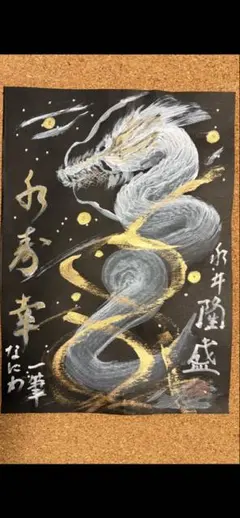 永井隆盛
永寿幸
一筆
なにわ